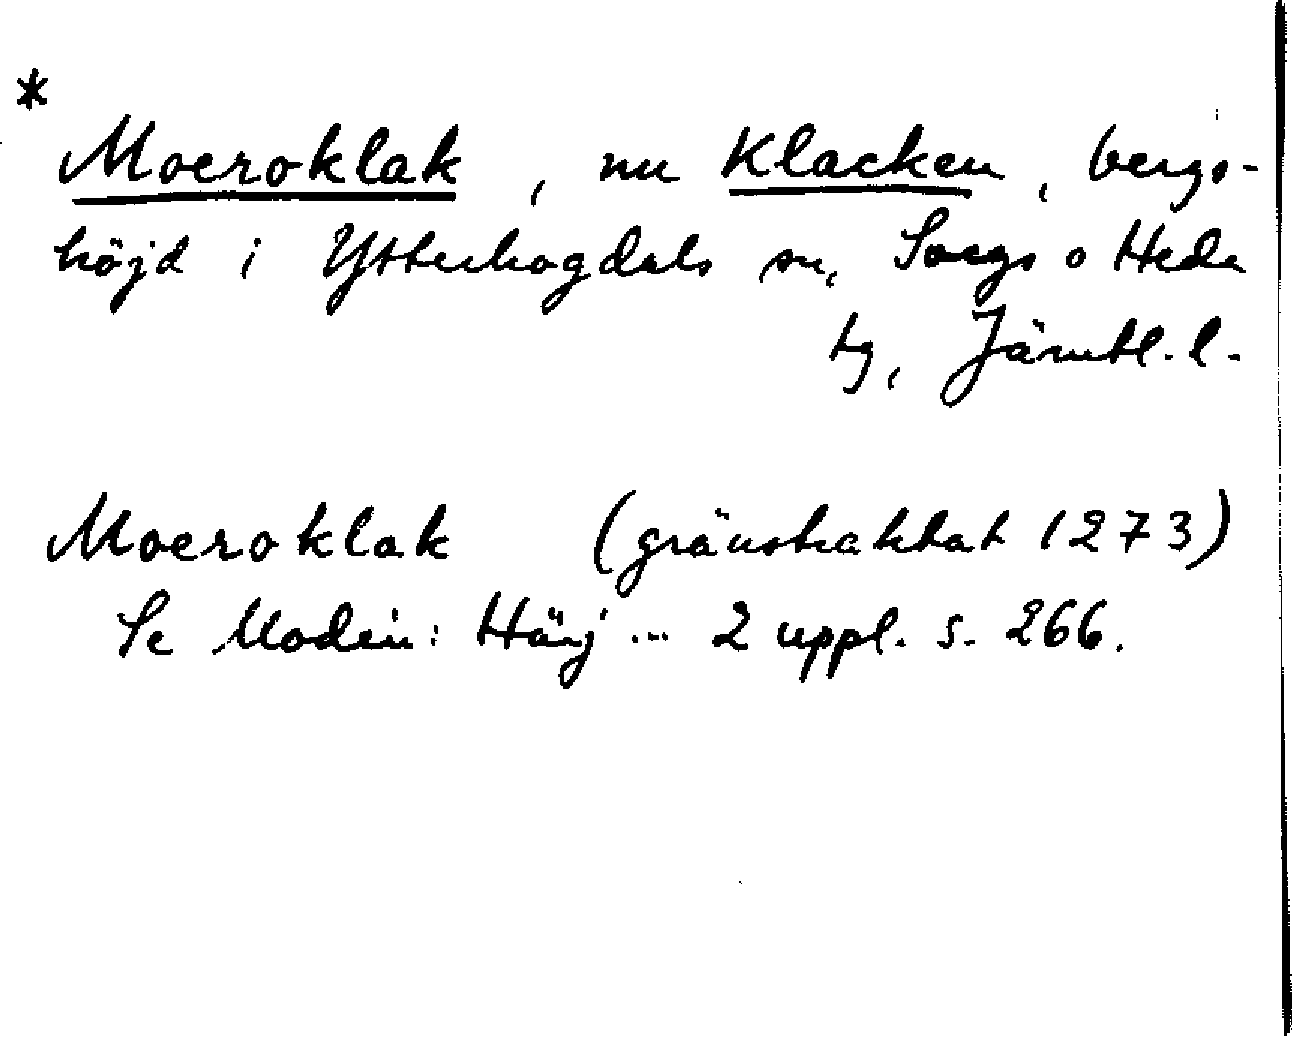 *
Moeroklak, nu Klacken, bergs-
höjd i Ytterhogdals sn, Svegs o Hede
tg, Jämtl. l.
Moeroklak (gränstraktat 1273)
Se Modin: Härj ... 2 uppl. s. 266.